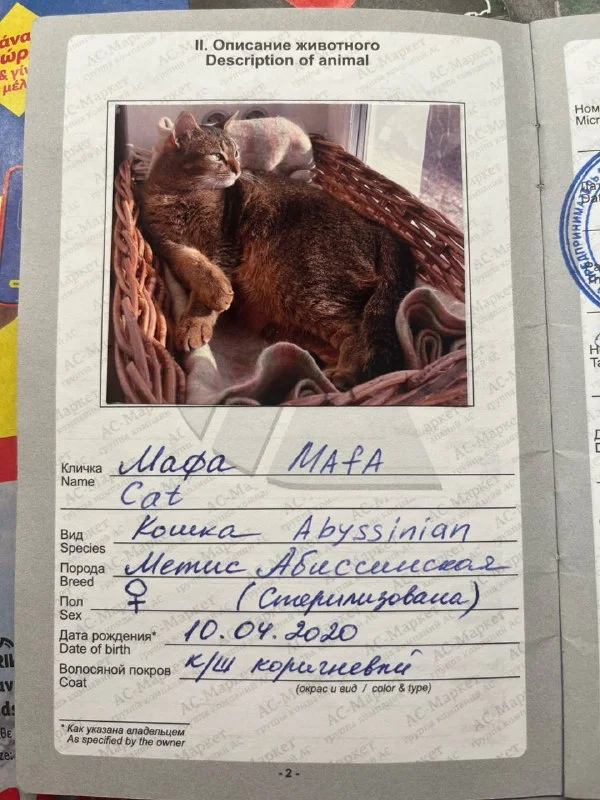 II. Описание животного
Description of animal
Кличка Мафа MAfA
Name
Cat
Вид Кошка Abyssinian
Species
Порода Метис Абиссинская
Breed
Пол ♀ (Стерилизована)
Sex
Дата рождения* 10.04.2020
Date of birth
Волосяной покров к/ш коричневый
Coat
(окрас и вид / color & type)
* Как указана владельцем
As specified by the owner
- 2 -
АС-Маркет
группа компаний